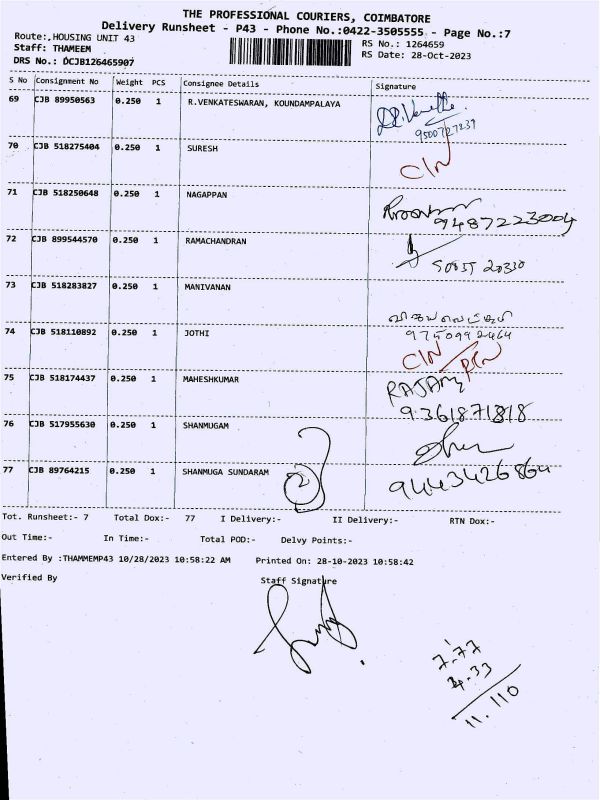 THE PROFESSIONAL COURIERS, COIMBATORE
Delivery Runsheet - P43 - Phone No.:0422-3505555 - Page No.:7
Route:,HOUSING UNIT 43
RS No.: 1264659
Staff: THAMEEM
RS Date: 28-Oct-2023
DRS No.: DCJB126465907
S No Consignment No Weight PCS Consignee Details Signature
69 CJB 89950563 0.250 1 R.VENKATESWARAN, KOUNDAMPALAYA
9500727237
70 CJB 518275404 0.250 1 SURESH
CIN
71 CJB 518250648 0.250 1 NAGAPPAN
9487223004
72 CJB 899544570 0.250 1 RAMACHANDRAN
73 CJB 518283827 0.250 1 MANIVANAN
9750992464
74 CJB 518110892 0.250 1 JOTHI
CIN RTN
75 CJB 518174437 0.250 1 MAHESHKUMAR
9361871818
76 CJB 517955630 0.250 1 SHANMUGAM
77 CJB 89764215 0.250 1 SHANMUGA SUNDARAM
2
9443426864
Tot. Runsheet:- 7 Total Dox:- 77 I Delivery:- II Delivery:- RTN Dox:-
Out Time:- In Time:- Total POD:- Delvy Points:-
Entered By :THAMMEMP43 10/28/2023 10:58:22 AM Printed On: 28-10-2023 10:58:42
Verified By Staff Signature
7.77
4.33
11.110